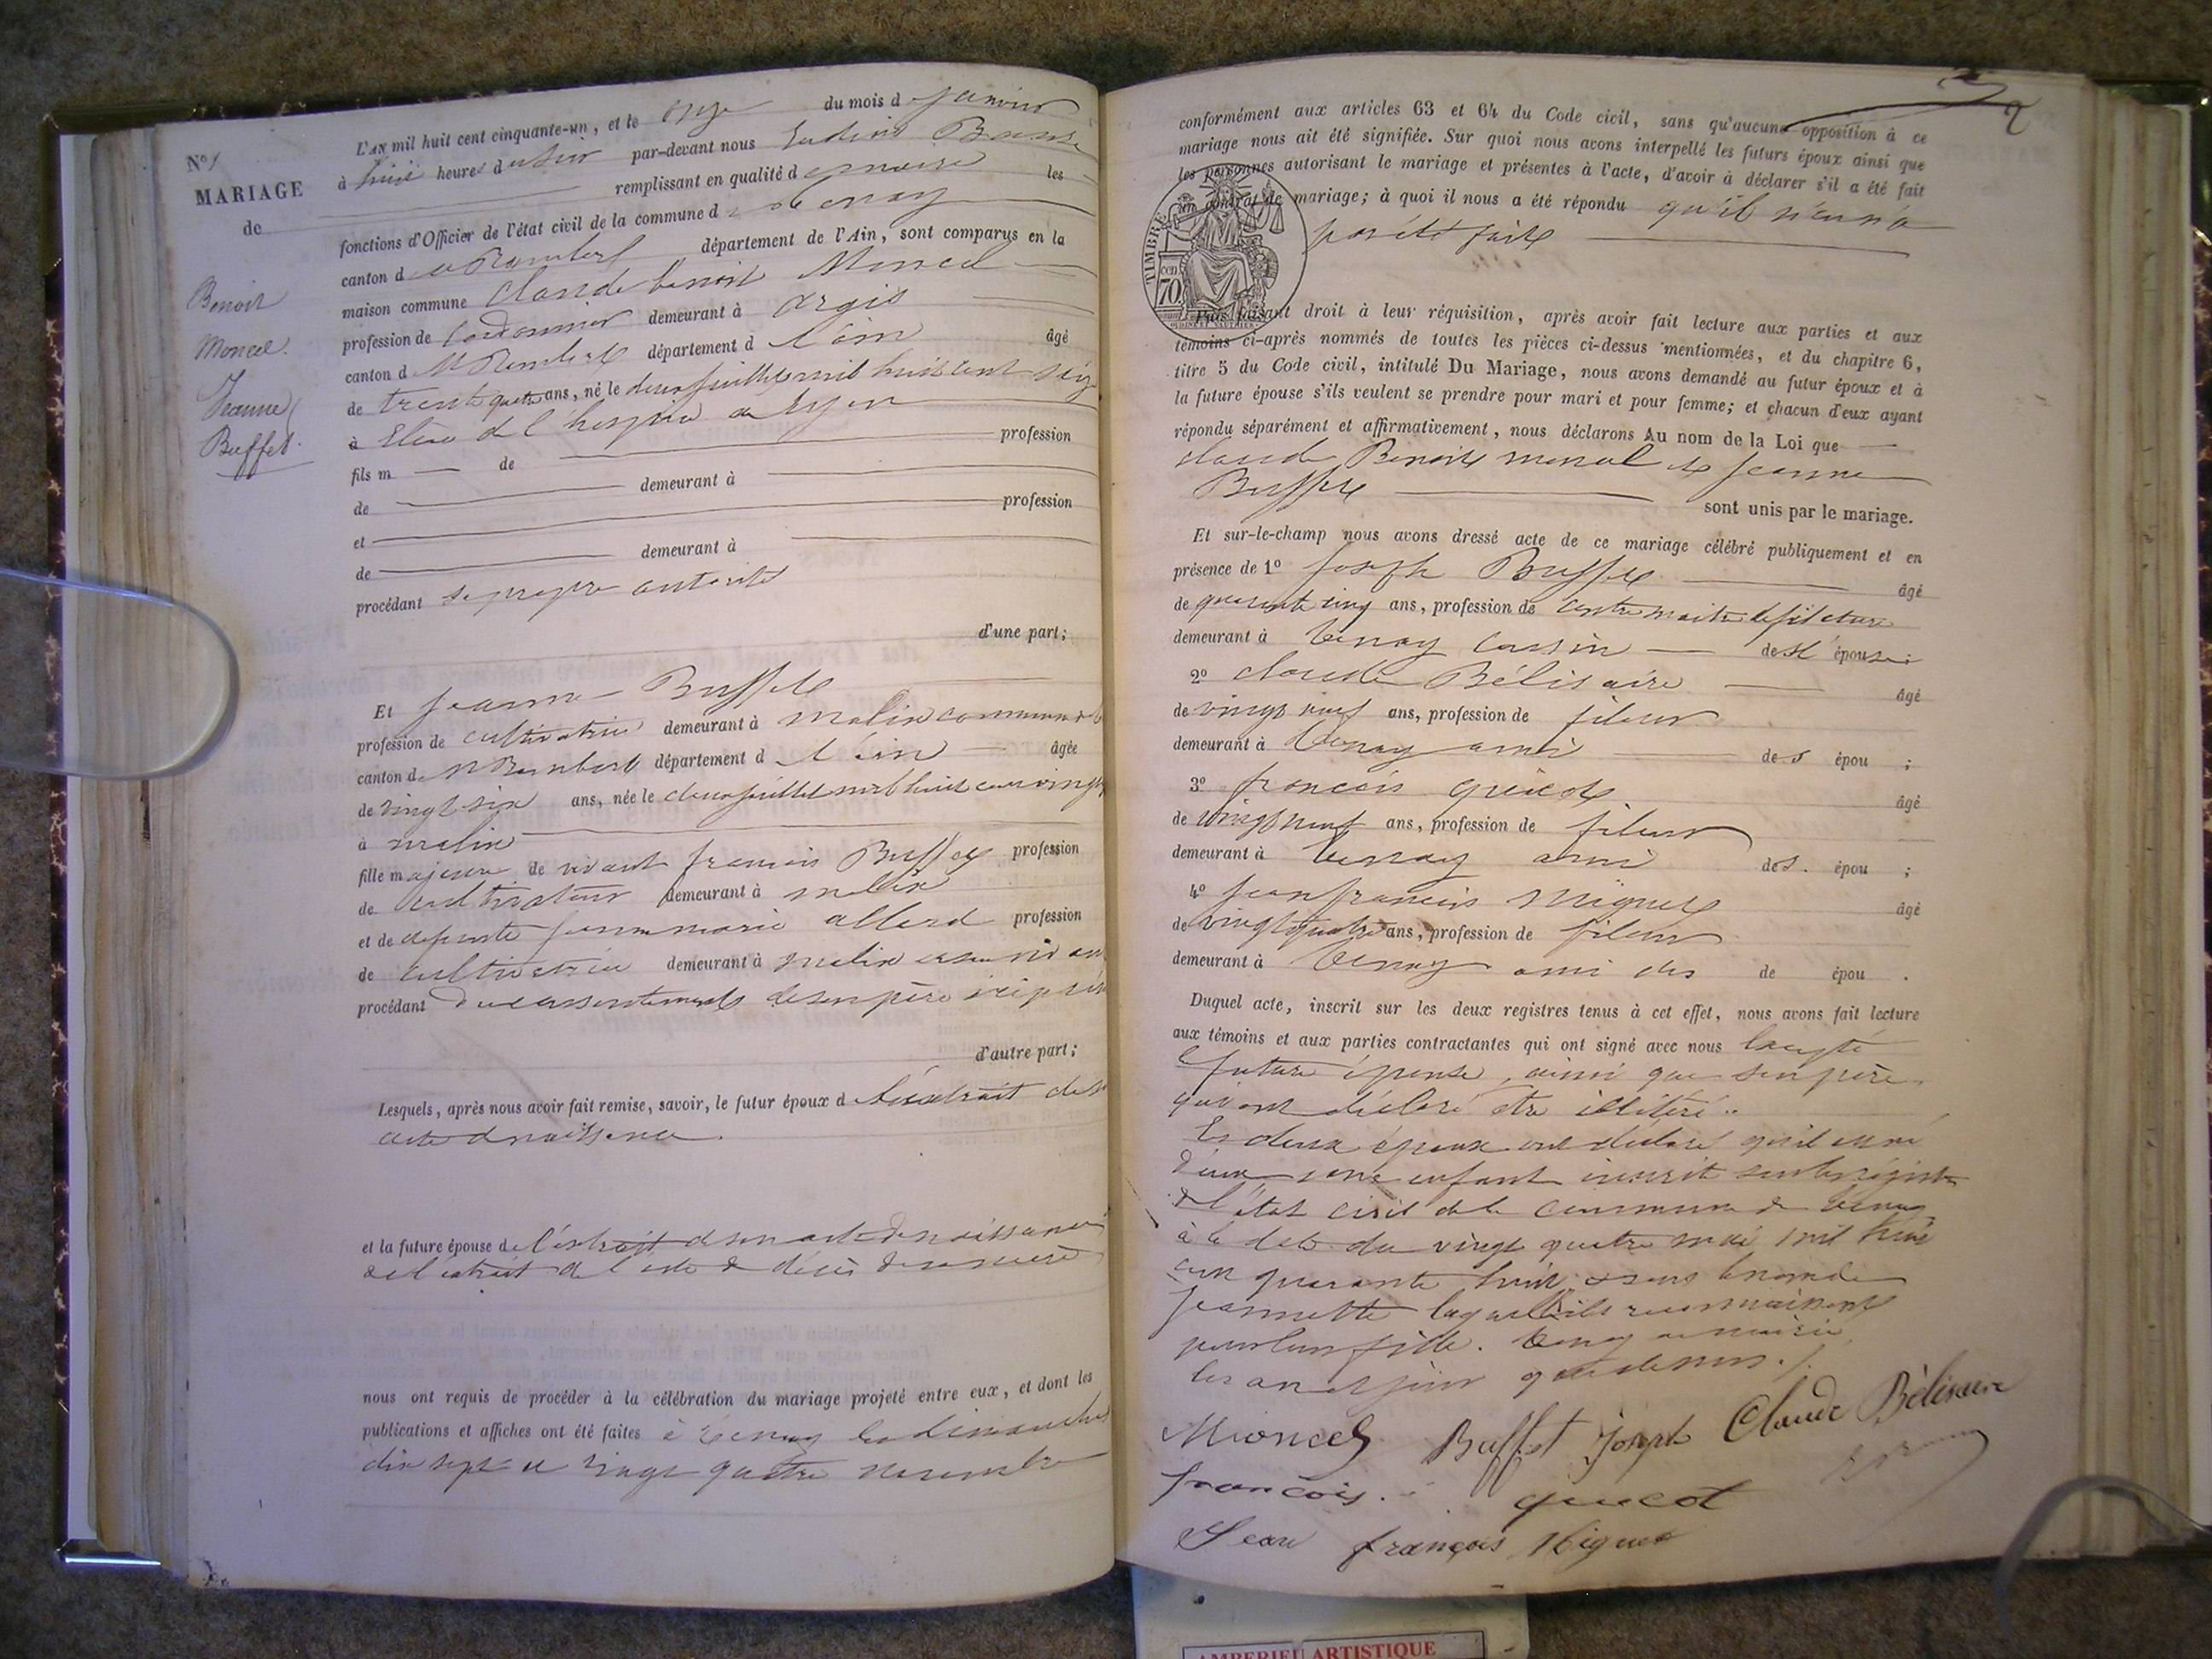 N° 1
MARIAGE
de
Benoit
Moncel.
Jeanne
Buffet.
L'AN mil huit cent cinquante-un, et le onze du mois de janvier
à huit heures du soir par-devant nous
remplissant en qualité de maire les
fonctions d'Officier de l'état civil de la commune de Tenay
canton de St Rambert département de l'Ain, sont comparus en la
maison commune Claude benoit Moncel
profession de Cordonnier demeurant à argis
canton d St Rambert département d l'ain âgé
de trente quatre ans, né le deux juillet mil huit cent seize
à Elève de l'hospice de Lyon
fils m de profession
de demeurant à
et profession
de demeurant à
procédant sa propre autorité
d'une part;
Et jeanne Buffet
profession de cultivatrice demeurant à malix commune de
canton de St Rambert département d l'ain âgée
de vingt six ans, née le deux juillet mil huit cent vingt
à malix
fille majeure de vivant francois Buffet profession
de cultivateur demeurant à malix
et de defunte jeanne marie allard profession
de cultivatrice demeurant à malix en son vivant
procédant du consentement de son père ici présent
d'autre part;
Lesquels, après nous avoir fait remise, savoir, le futur époux d l'extrait de son
acte de naissance.
et la future épouse de l'extrait de son acte de naissance
de l'extrait de l'acte de décès de sa mère
nous ont requis de procéder à la célébration du mariage projeté entre eux, et dont les
publications et affiches ont été faites à Tenay les dimanches
dix sept et vingt quatre novembre
2
conformément aux articles 63 et 64 du Code civil, sans qu'aucune opposition à ce
mariage nous ait été signifiée. Sur quoi nous avons interpellé les futurs époux ainsi que
les personnes autorisant le mariage et présentes à l'acte, d'avoir à déclarer s'il a été fait
un contrat de mariage; à quoi il nous a été répondu qu'il n'en a
pas été fait
TIMBRE
70
cen
Puis faisant droit à leur réquisition, après avoir fait lecture aux parties et aux
témoins ci-après nommés de toutes les pièces ci-dessus mentionnées, et du chapitre 6,
titre 5 du Code civil, intitulé Du Mariage, nous avons demandé au futur époux et à
la future épouse s'ils veulent se prendre pour mari et pour femme; et chacun d'eux ayant
répondu séparément et affirmativement, nous déclarons Au nom de la Loi que
claude Benoit moncel et jeanne
Buffet sont unis par le mariage.
Et sur-le-champ nous avons dressé acte de ce mariage célébré publiquement et en
présence de 1° joseph Buffet âgé
de quarante cinq ans, profession de contre maitre de filature
demeurant à tenay cousin de l' épouse;
2° claude Bélisaire âgé
de vingt neuf ans, profession de fileur
demeurant à tenay ami des épou ;
3° francois quicot âgé
de vingt neuf ans, profession de fileur
demeurant à tenay ami des. épou ;
4° jean francois Miguet âgé
de vingt quatre ans, profession de fileur
demeurant à tenay ami des de épou .
Duquel acte, inscrit sur les deux registres tenus à cet effet, nous avons fait lecture
aux témoins et aux parties contractantes qui ont signé avec nous Excepté
la future épouse, ainsi que son père
qui ont déclaré être illitéré..
Les deux époux ont déclaré qu'il est né
d'eux un enfant inscrit sur les registres
de l'état civil de la commune de tenay
à la date du vingt quatre mai mil huit
cent quarante huit, et sous le nom de
jeannette laquelle ils reconnaissent
pour leur fille. tenay en mairie
les an et jour que dessus.
Moncel Buffet Joseph Claude Bélisaire
francois. quicot
Jean françois Miguet
AMBERIEU ARTISTIQUE